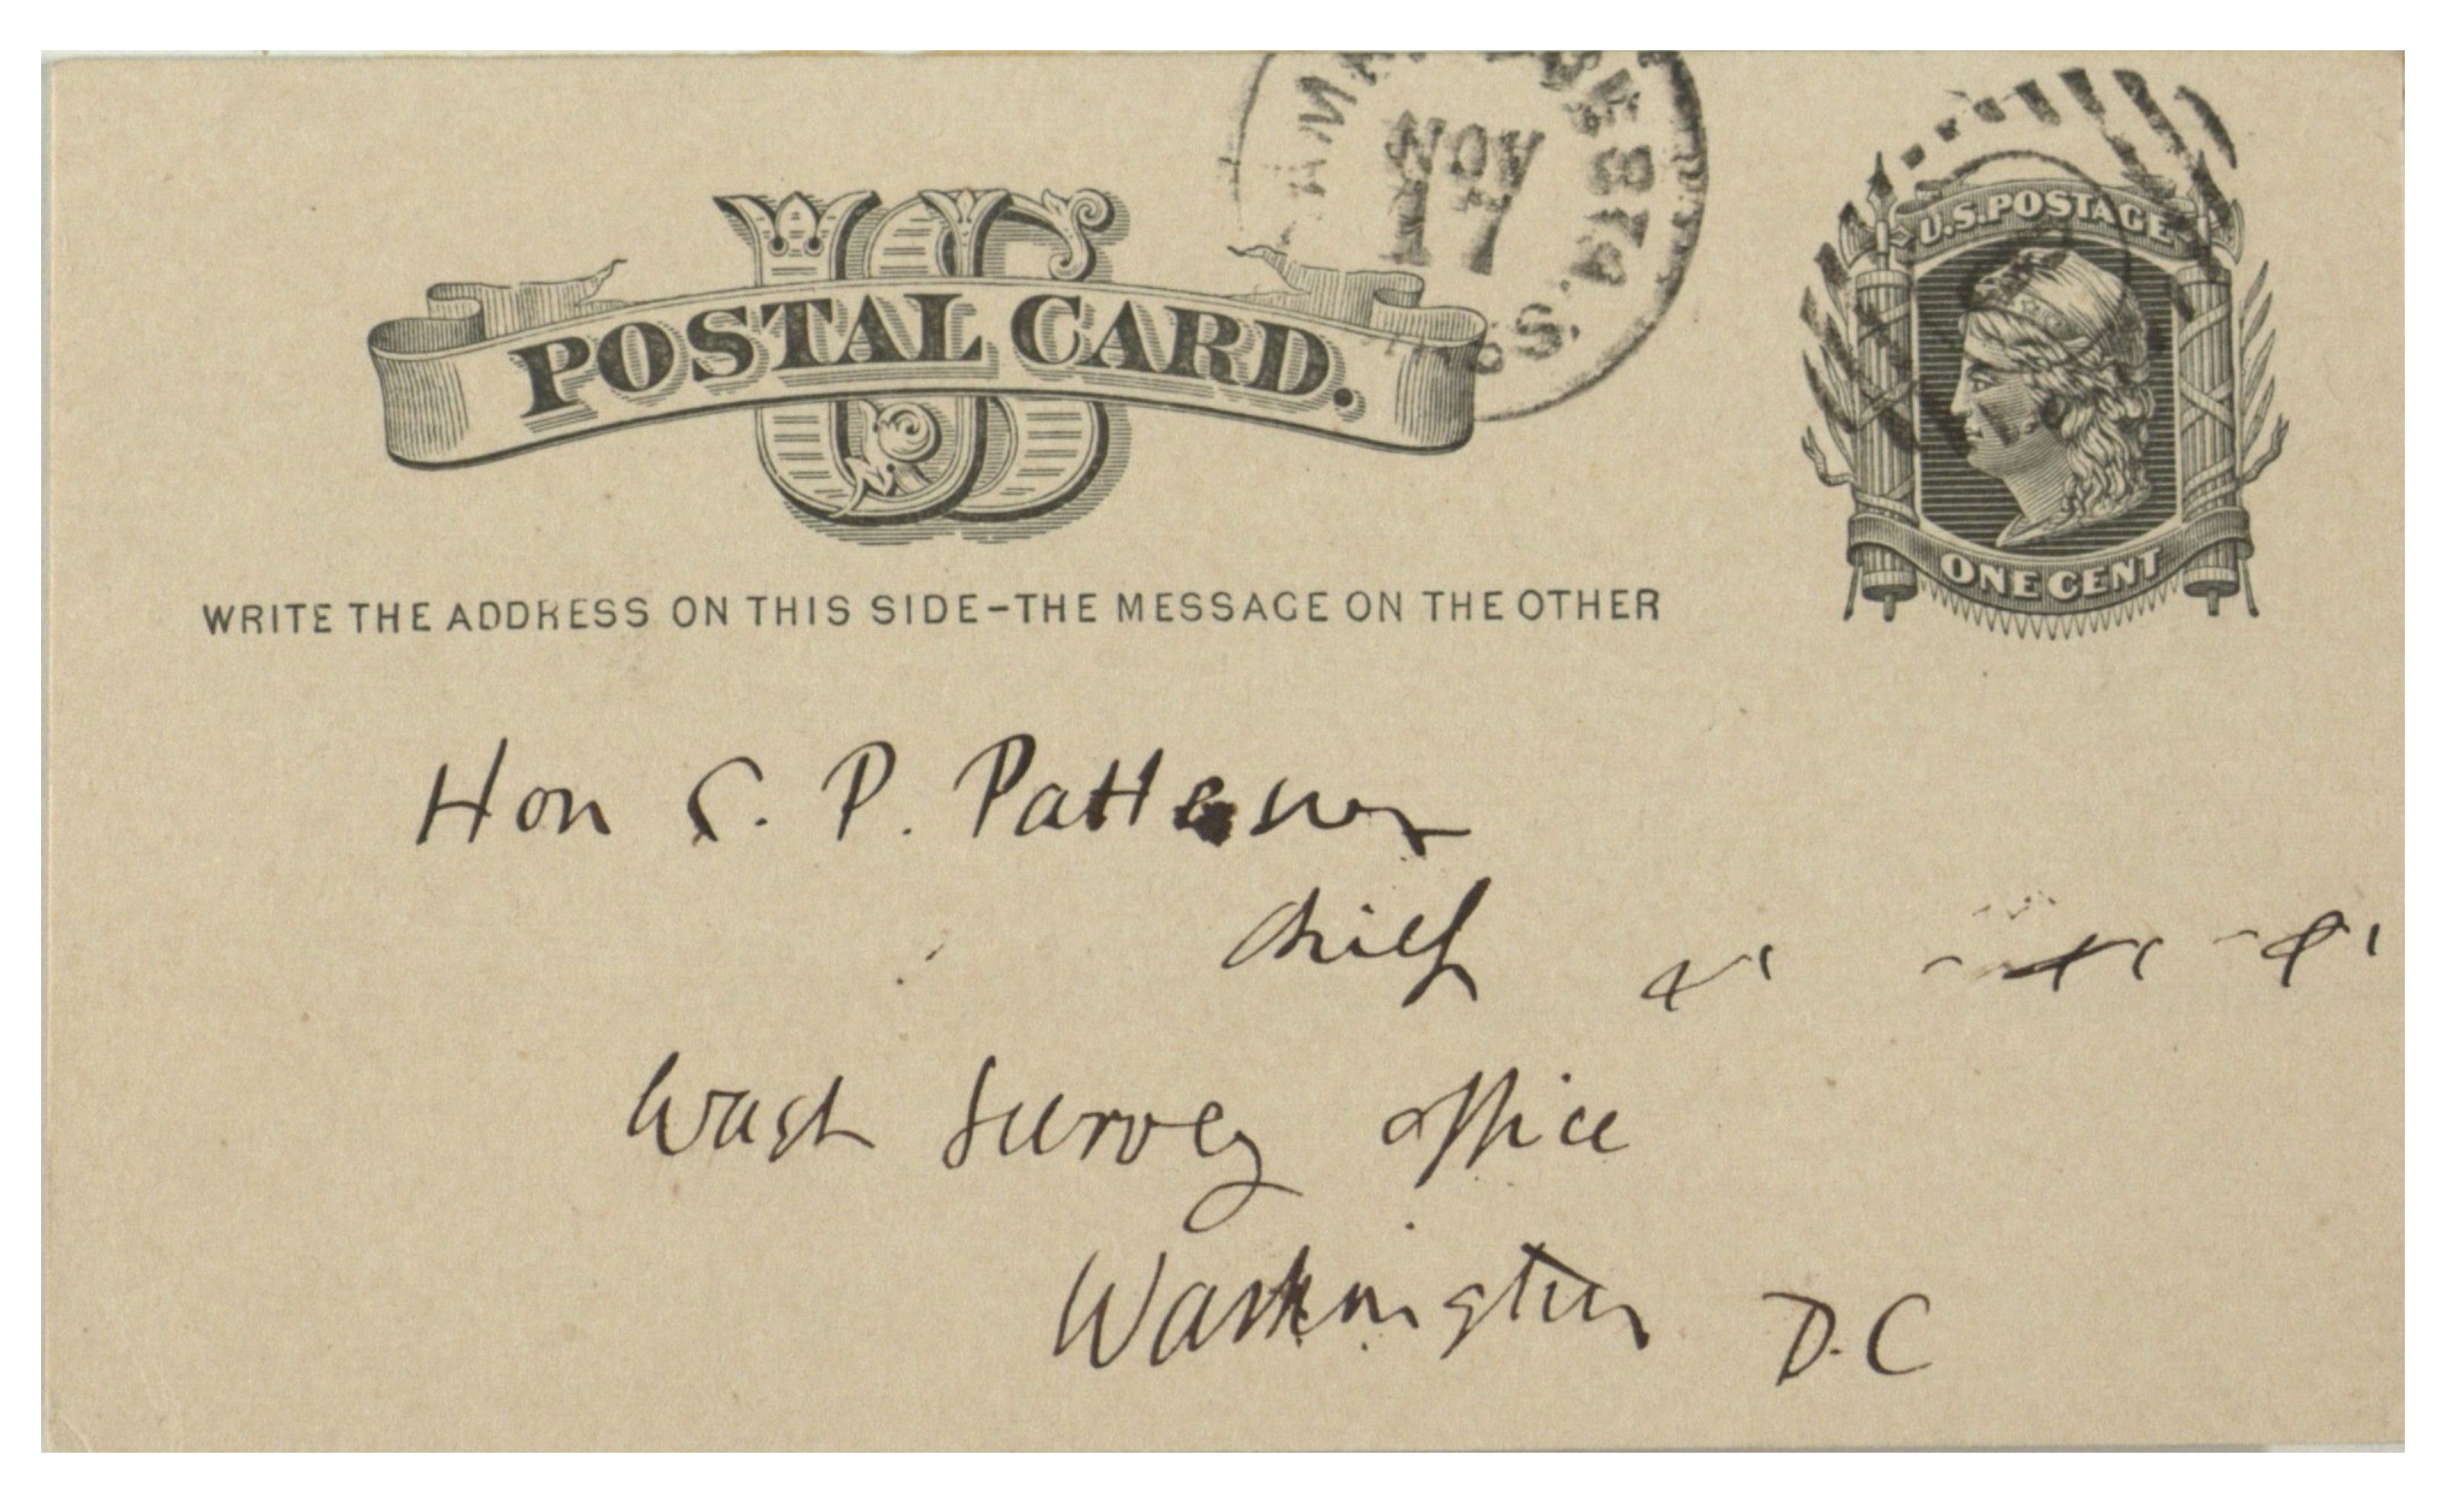 NOV
17
US
POSTAL CARD.
U.S. POSTAGE
ONE CENT
WRITE THE ADDRESS ON THIS SIDE-THE MESSAGE ON THE OTHER
Hon C. P. Patterson
Chief
Coast Survey office
Washington D.C